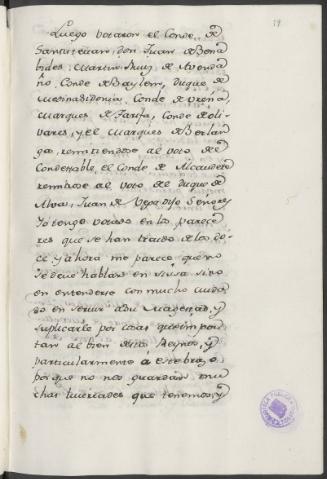 19
Luego votaron el Conde, de
Santisteuan, don Juan de Bena
bides, Martin Ruiz de Avenda
ño, Conde de Baylen, duque de
Medinasidonia, Conde de Vreña,
Marques de Tarifa, Conde de oli-
vares, y el Marques de Berlan
ga, remitiendose al voto del
Condestable, el Conde de Alcaudete
remitiose al voto del duque de
Alva, Juan de Vega dijo Señores
Yo tengo votado en los parece
res que se han traido de los do-
ce, y ahora me parece que no
se deue hablar en sisa, sino
en entenderse con mucho cuida
do en seruir a su Magestad, y
suplicarle por cosas que impor
tan al bien destos Reynos, y
particularmente á este brazo,
porque no nos guardan mu
chas livertades que tenemos, y